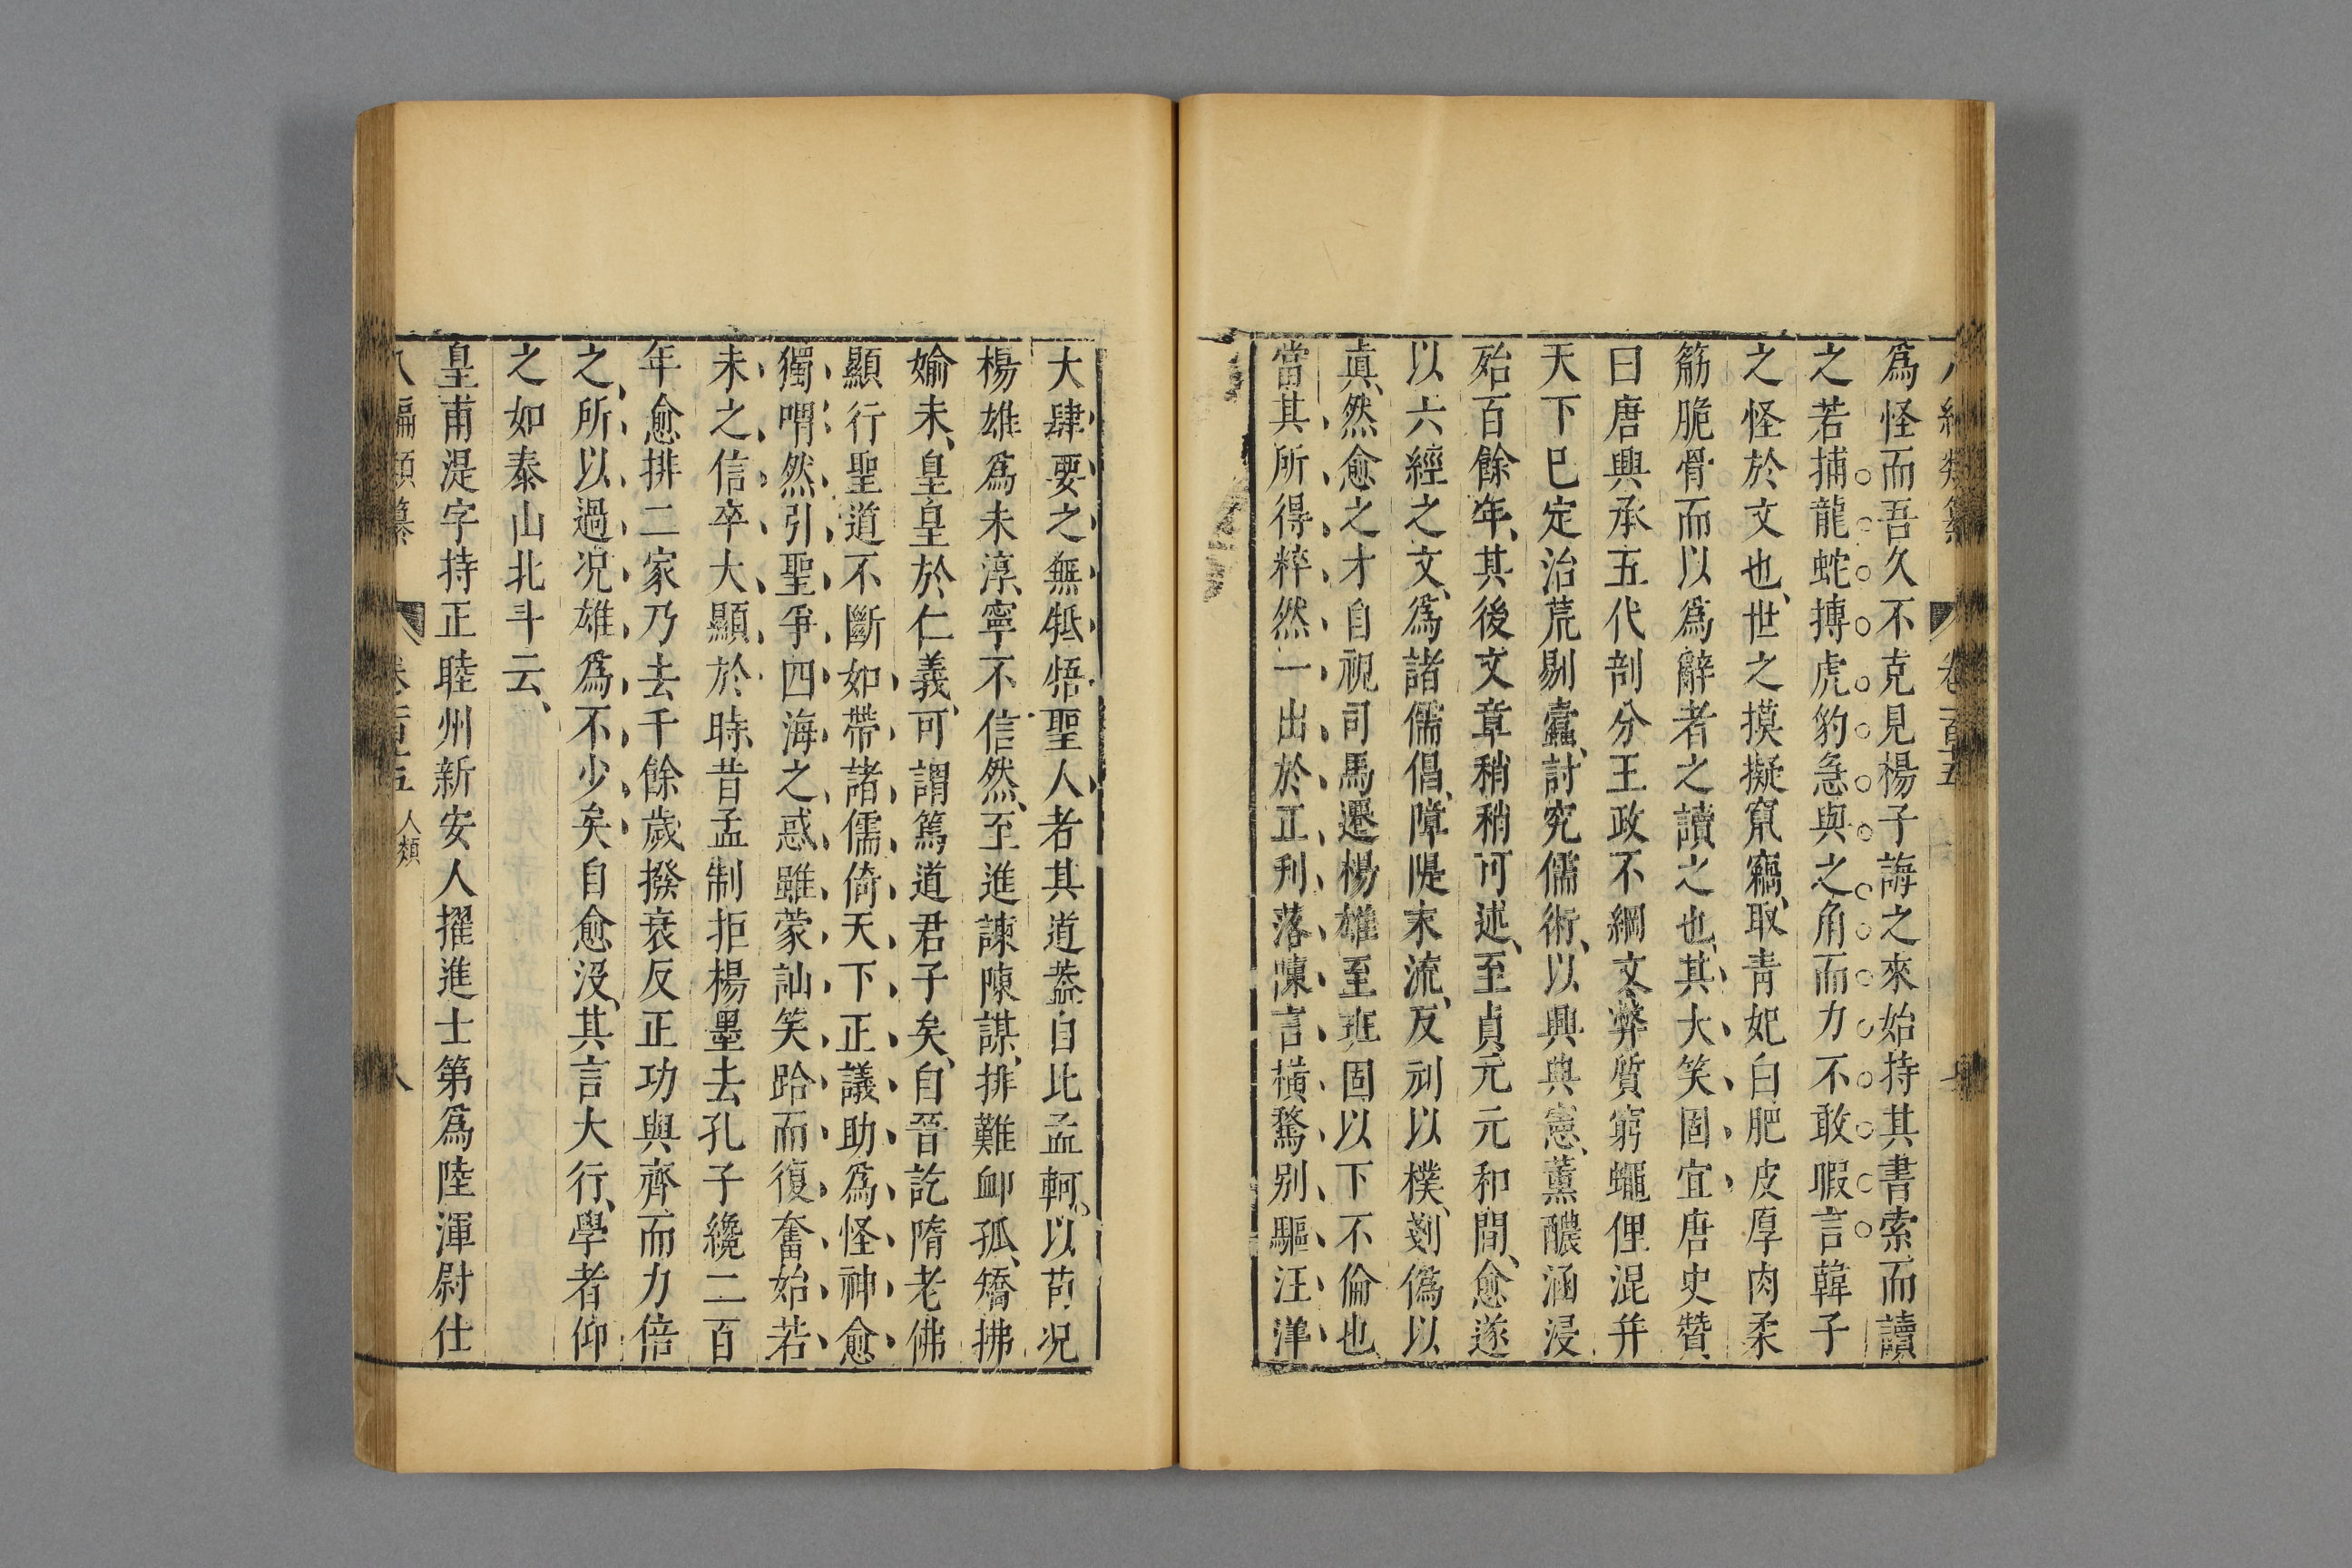 爲怪而吾久不克見楊子誨之來始持其書索而讀
之若捕龍蛇搏虎豹急與之角而力不敢暇言韓子
之怪於文也、世之摸擬竄竊、取青妃白肥皮厚肉柔
筋脆骨而以爲辭者之讀之也、其大笑固宜唐史贊
曰唐興承五代剖分王政不綱文弊質窮䵷俚混并
天下已定治荒剔蠹、討究儒術、以興典憲、薰醲涵浸
殆百餘年、其後文章稍稍可述、至貞元元和間、愈遂
以六經之文、爲諸儒倡、障隄末流、反刓以樸、剗僞以
眞、然愈之才自視司馬遷楊雄至班固以下不倫也、
當其所得粹然一出於正刋落陳言橫騖别驅汪洋
大肆要之無牴悟聖人者其道葢自比孟軻、以荀况
楊雄爲未淳、寧不信然、至進諫陳謀、排難卹孤、矯拂
媮末、皇皇於仁義、可謂篤道君子矣、自晉訖隋老佛
顯行聖道不斷如帶諸儒倚天下正議助爲怪神愈
獨喟然引聖爭四海之惑雖蒙訕笑跲而復奮始若
未之信卒大顯於時、昔孟制拒楊墨去孔子纔二百
年愈排二家乃去千餘歲撥衰反正功與齊而力倍
之、所以過况雄爲不少矣自愈没、其言大行、學者仰
之如泰山北斗云、
皇甫湜字持正睦州新安人擢進士第爲陸渾尉仕
八編類纂 卷一百五 人類 八